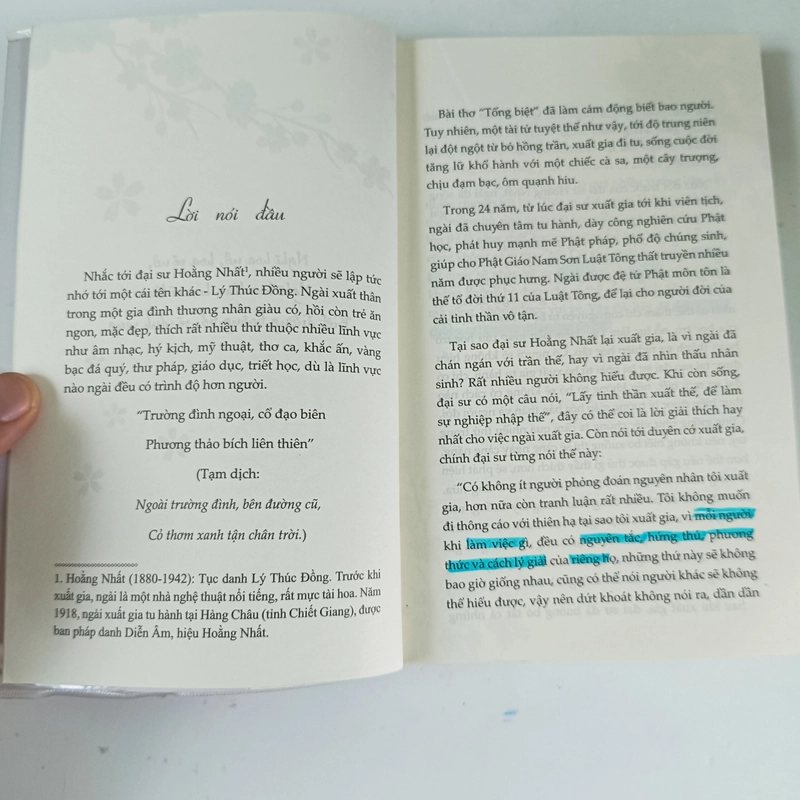 Lời nói đầu
Nhắc tới đại sư Hoằng Nhất¹, nhiều người sẽ lập tức
nhớ tới một cái tên khác - Lý Thúc Đồng. Ngài xuất thân
trong một gia đình thương nhân giàu có, hồi còn trẻ ăn
ngon, mặc đẹp, thích rất nhiều thứ thuộc nhiều lĩnh vực
như âm nhạc, hý kịch, mỹ thuật, thơ ca, khắc ấn, vàng
bạc đá quý, thư pháp, giáo dục, triết học, dù là lĩnh vực
nào ngài đều có trình độ hơn người.
“Trường đình ngoại, cổ đạo biên
Phương thảo bích liên thiên”
(Tạm dịch:
Ngoài trường đình, bên đường cũ,
Cỏ thơm xanh tận chân trời.)
1. Hoằng Nhất (1880-1942): Tục danh Lý Thúc Đồng. Trước khi
xuất gia, ngài là một nhà nghệ thuật nổi tiếng, rất mực tài hoa. Năm
1918, ngài xuất gia tu hành tại Hàng Châu (tỉnh Chiết Giang), được
ban pháp danh Diễn Âm, hiệu Hoằng Nhất.
Bài thơ “Tống biệt” đã làm cảm động biết bao người.
Tuy nhiên, một tài tử tuyệt thế như vậy, tới độ trung niên
lại đột ngột từ bỏ hồng trần, xuất gia đi tu, sống cuộc đời
tăng lữ khổ hành với một chiếc cà sa, một cây trượng,
chịu đạm bạc, ôm quạnh hiu.
Trong 24 năm, từ lúc đại sư xuất gia tới khi viên tịch,
ngài đã chuyên tâm tu hành, dày công nghiên cứu Phật
học, phát huy mạnh mẽ Phật pháp, phổ độ chúng sinh,
giúp cho Phật Giáo Nam Sơn Luật Tông thất truyền nhiều
năm được phục hưng. Ngài được đệ tử Phật môn tôn là
thế tổ đời thứ 11 của Luật Tông, để lại cho người đời của
cải tinh thần vô tận.
Tại sao đại sư Hoằng Nhất lại xuất gia, là vì ngài đã
chán ngán với trần thế, hay vì ngài đã nhìn thấu nhân
sinh? Rất nhiều người không hiểu được. Khi còn sống,
đại sư có một câu nói, “Lấy tinh thần xuất thế, để làm
sự nghiệp nhập thế”, đây có thể coi là lời giải thích hay
nhất cho việc ngài xuất gia. Còn nói tới duyên cớ xuất gia,
chính đại sư từng nói thế này:
“Có không ít người phỏng đoán nguyên nhân tôi xuất
gia, hơn nữa còn tranh luận rất nhiều. Tôi không muốn
đi thông cáo với thiên hạ tại sao tôi xuất gia, vì mỗi người
khi làm việc gì, đều có nguyên tắc, hứng thú, phương
thức và cách lý giải của riêng họ, những thứ này sẽ không
bao giờ giống nhau, cũng có thể nói người khác sẽ không
thể hiểu được, vậy nên dứt khoát không nói ra, dần dần